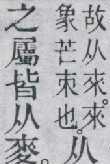 故从來來
象芒朿也从
之屬皆从麥